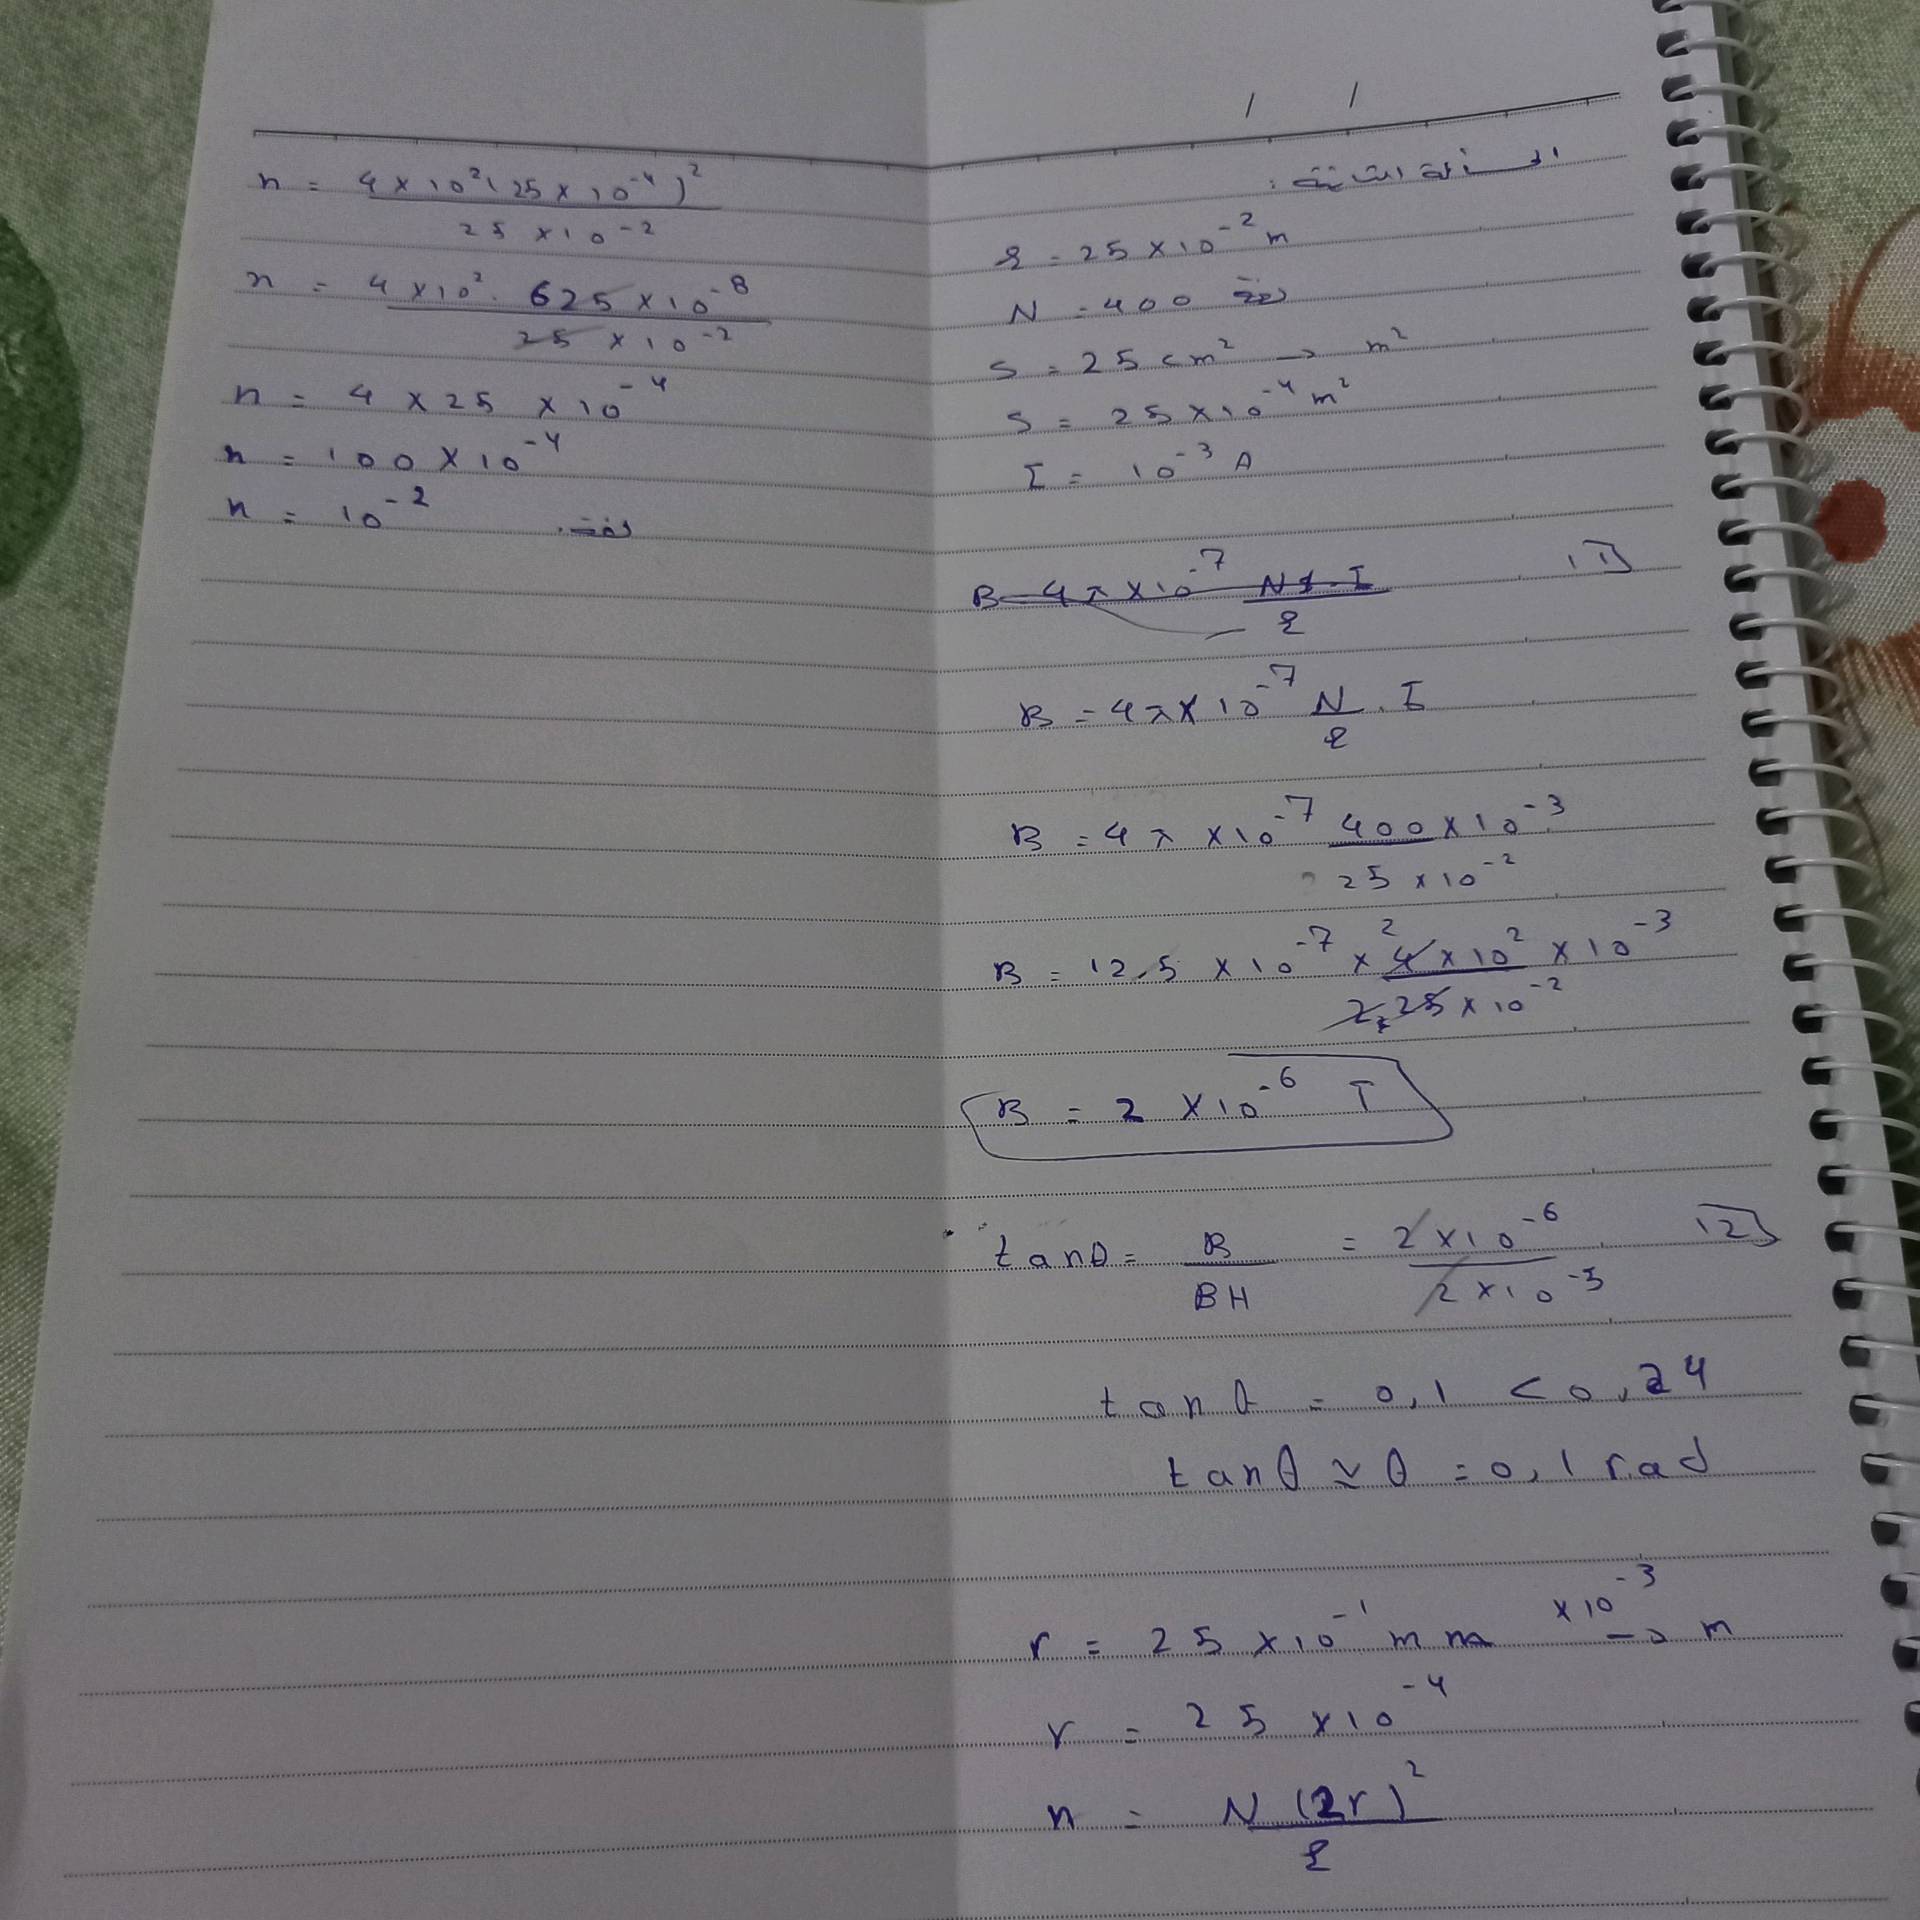 / /
المسألة الثانية:
ℓ = 25 × 10⁻² m
N = 400 لفة
S = 25 cm² → m²
S = 25 × 10⁻⁴ m²
I = 10⁻³ A
1
B = 4π × 10⁻⁷ N/ℓ . I
B = 4π × 10⁻⁷ 400 × 10⁻³ / 25 × 10⁻²
B = 12,5 × 10⁻⁷ × 4 × 10² × 10⁻³ / 25 × 10⁻²
B = 2 × 10⁻⁶ T
tanθ = B / BH = 2 × 10⁻⁶ / 2 × 10⁻⁵ 2
tanθ = 0,1 < 0,24
tanθ ≃ θ = 0,1 rad
r = 25 × 10⁻¹ mm ×10⁻³ → m
r = 25 × 10⁻⁴
n = N (2r)² / ℓ
n = 4 × 10² (25 × 10⁻⁴)² / 25 × 10⁻²
n = 4 × 10² . 625 × 10⁻⁸ / 25 × 10⁻²
n = 4 × 25 × 10⁻⁴
n = 100 × 10⁻⁴
n = 10⁻² لفة